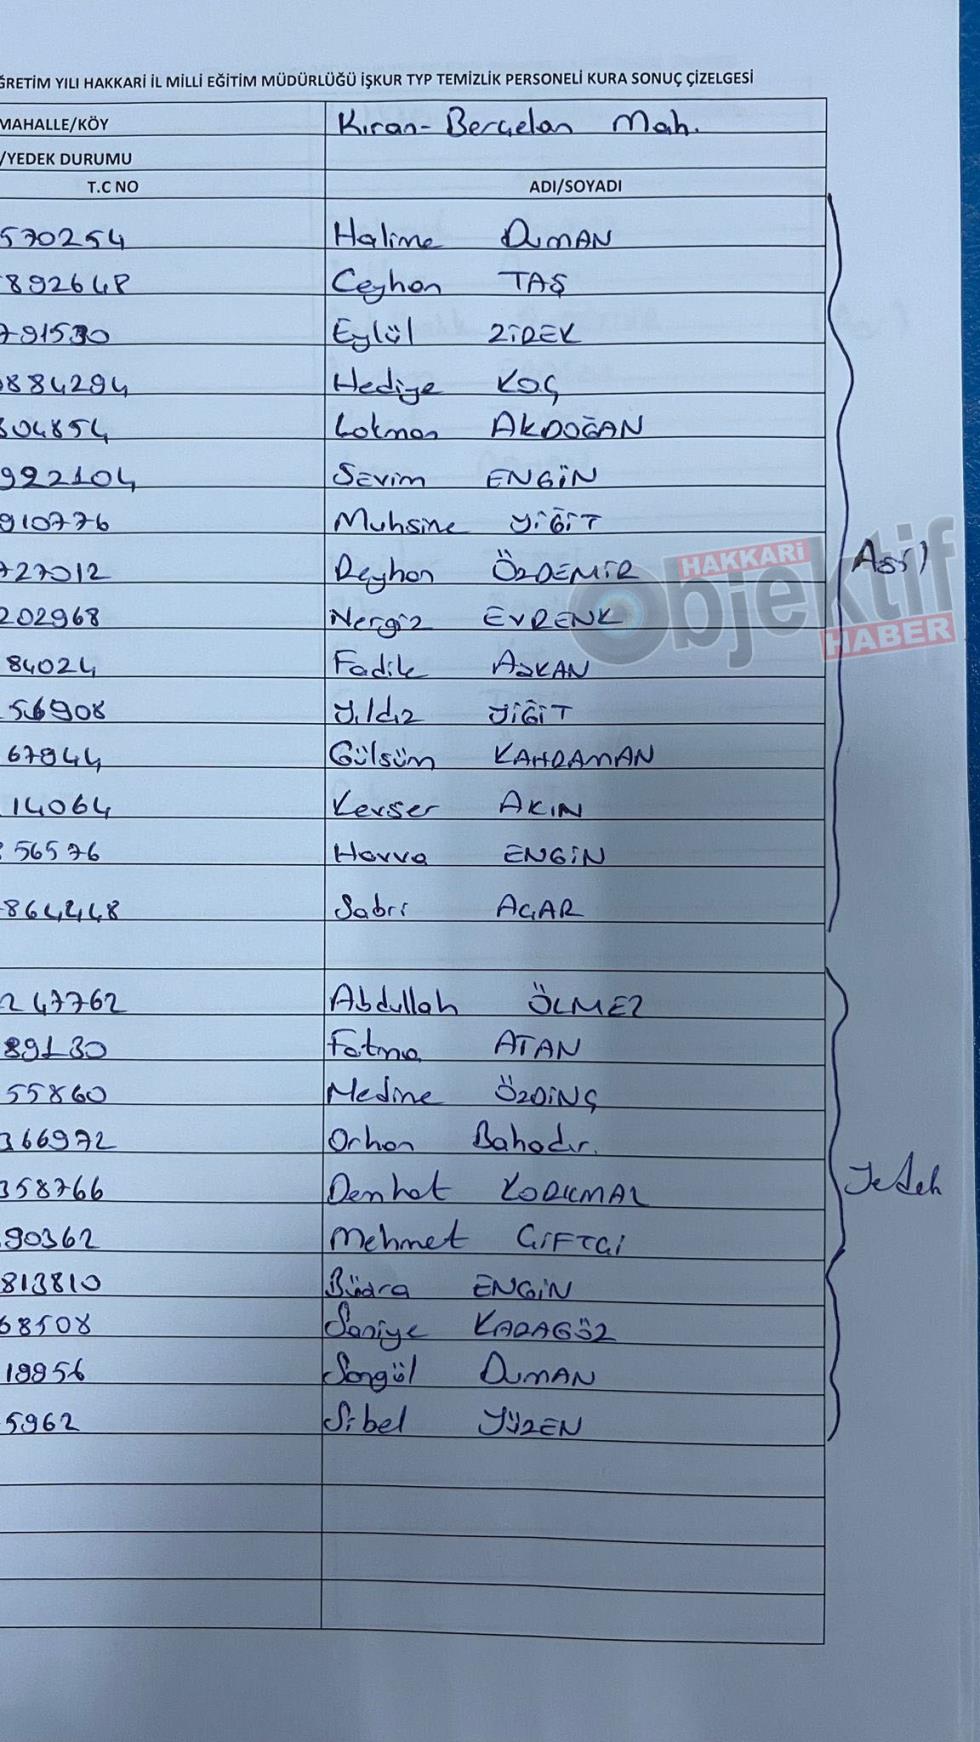 ĞRETİM YILI HAKKARİ İL MİLLİ EĞİTİM MÜDÜRLÜĞÜ İŞKUR TYP TEMİZLİK PERSONELİ KURA SONUÇ ÇİZELGESİ
MAHALLE/KÖY Kıran-Berçelan Mah.
/YEDEK DURUMU
T.C NO ADI/SOYADI
570254 Halime DUMAN
892648 Ceyhan TAŞ
791530 Eylül ZİREK
884294 Hediye KOÇ
304854 Lokman AKDOĞAN
922104 Sevim ENGİN
910776 Muhsine YİĞİT
727012 Reyhan ÖZDEMİR
202968 Nergiz EVRENK
84024 Fadik ASKAN
56908 Yıldız YİĞİT
67944 Gülsüm KAHRAMAN
14064 Kevser AKIN
56576 Havva ENGİN
864448 Sabri ACAR
Asil
HAKKARİ
Objektif
HABER
247762 Abdullah ÖLMEZ
89130 Fatma ATAN
55860 Medine ÖZDİNÇ
366972 Orhan Bahadır.
358766 Denhat KORKMAZ
90362 Mehmet ÇİFTÇİ
813810 Büşra ENGİN
68508 Saniye KARAGÖZ
19956 Songül DUMAN
5962 Sibel YÜZEN
Yedek